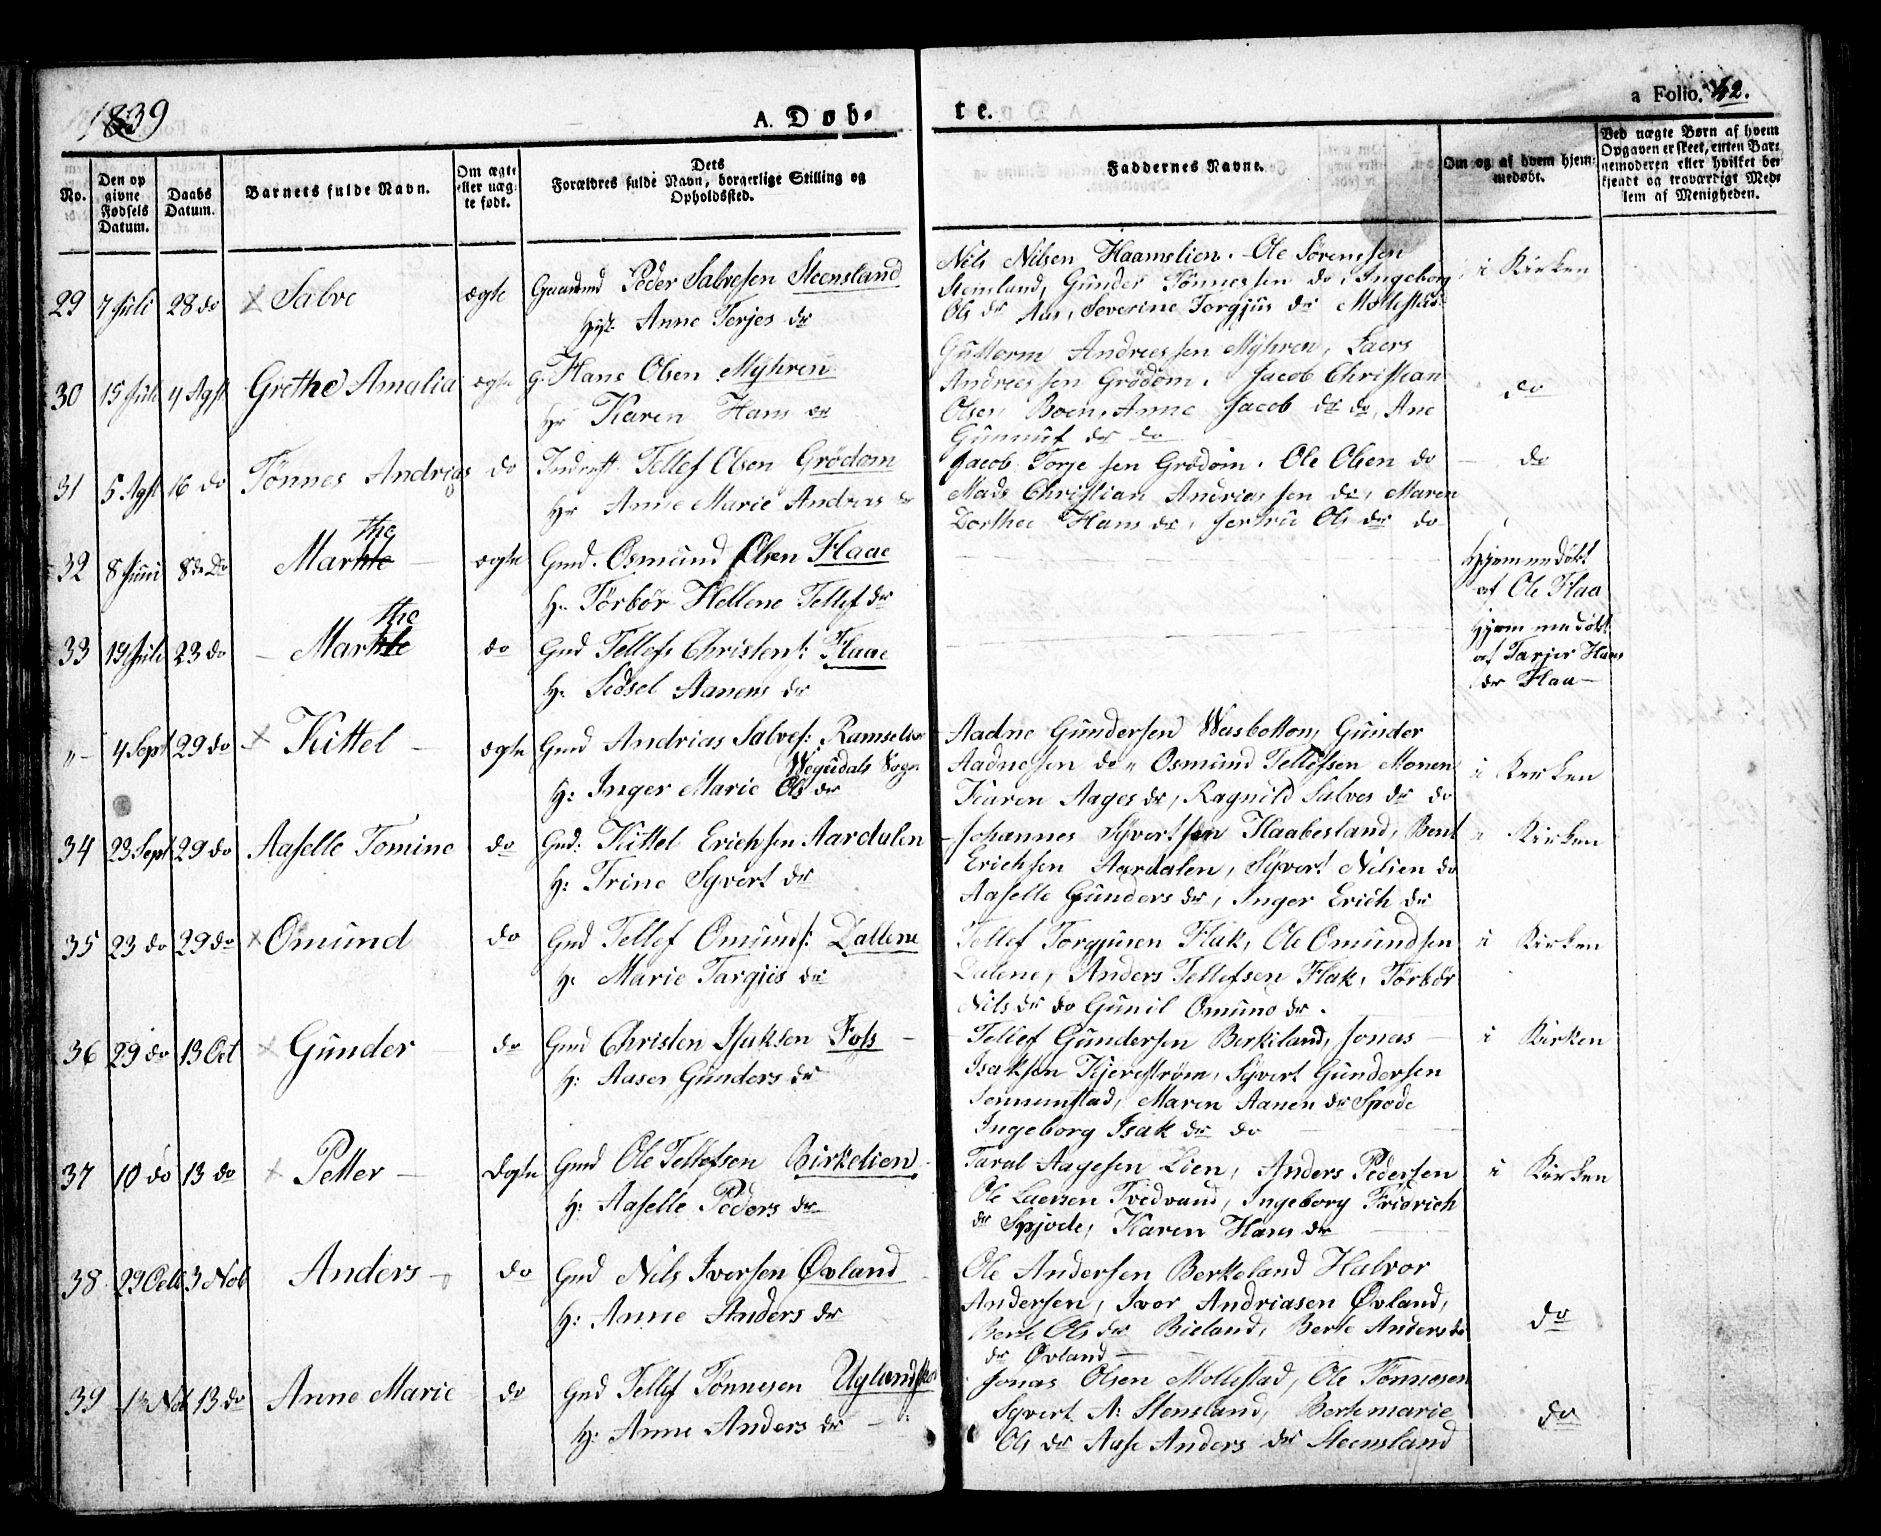 1839
A. Døb-
te.
a Folio. 42.
No.
Den op
givne
Fødsels
Datum.
Daabs
Datum.
Barnets fulde Navn.
Om ægte
eller uæg-
te født.
Dets
Forældres fulde Navn, borgerlige Stilling og
Opholdssted.
Faddernes Navne.
Om og af hvem hjem-
medøbt.
Ved uægte Børn af hvem
Opgaven er skeet, enten Bar-
nemoderen eller hvilket be-
kjendt og troværdigt Med-
lem af Menigheden.
29 7 Juli 28 do Salve ægte Gaardmd Peder Salvesen Steensland
Anne Terjes dr
Nils Nilsen Haamelien. Ole Sørenssen
Stensland, Gunder Tønnessen do, Ingeborg
Ols dr Aas, Severine Torgjus dr Mollestad
i Kirken
30 15 Juli 4 Agst Grethe Amalia ægte G. Hans Olsen Myhren
Hr Karen Hans dr
Guttorm Andreessen Myhren, Laers
Andreessen Grødom. Jacob Christian
Olsen Boen. Anne Jacob dr do, Ane
Gunnuf dr do
do
31 5 Agst 16 do Tønnes Andreas do Inderst. Tellef Olsen Grødom
Hr Anne Marie Andreas dr
Jacob Torje sen Grødom. Ole Olsen do
Mads Christian Andreas sen do, Maren
Dorthea Hans dr, Ols dr do
do
32 8 Juni 8 de Do Marthe ægte Gmd. Osmund Olsen Flaae
H. Torbør Hellene Tellef dr
Hjemmedøbt
af Ole Flaa
33 19 Juli 23 do Marthe do Gmd Tellefs Christens: Flaae
H: Sidsel Aanens dr
Hjemmedøbt
af Tarjer Hans
dr Flaa
"- 4 Sept 29 do Kittel ægte Gmd Andrias Salves: Ramselien
Wegusdals Sogn
H: Inger Marie Ols dr
Aadne Gundersen Wasbotton, Gunder
Aadnesen do " Osmund Tellefsen Monen
Karen Aages dr, Ragnild Salves dr do
i Kirken
34 23 Sept 29 do Aaselle Tomine do Gmd: Kittel Erichsen Aardalen
H: Trine Syvert dr
Johannes Syvertsen Haabesland, Bent
Erichsen Aardalen, Syvert Nilsen do
Aaselle Gunders dr, Inger Erich dr
i Kirken
35 23 do 29 do Omund do Gmd Tellef Omunds: Dallene
H: Marie Targiis dr
Tellef Torgjusen Flak, Ole Omundsen
Dalene, Anders Tellefsen Flak, Torbor
Nils dr do Gunil Omund dr.
i Kirken
36 29 do 13 Oct Gunder do Gmd Christen Isaksen Foss
H: Aaser Gunders dr
Tellef Gundersen Berkeland, Jonas
Isaksen Kjerestrøm, Syvert Gundersen
Sennumstad, Maren Aanen dr Spode
Ingeborg Isak dr do
i Kirken
37 10 do 13 do Petter Ægte Gmd Ole Tellefsen Birkelien
H: Aaselle Peders dr
Taral Aagesen Lien, Anders Pedersen
Ole Laersen Tvedvand, Ingeborg Fridrich
dr Spjode, Karen Hans dr
i Kirken
38 29 Octb 3 Nob Anders do Gmd Nils Iversen Øvland
H: Anne Anders dr
Ole Andersen Berkeland Halvor
Andersen, Ivor Andriasen Øvland,
Berte Ols dr Bieland, Berte Anders
dr Øvland
do
39 13 Nob 13 do Anne Marie do Gmd Tellef Tønnesen
H: Anne Anders dr
Jonas Olsen Mollestad, Ole Tønnesen
Syvert A: Stensland, Berte marie
Ols dr Aase Anders dr Steensland
do